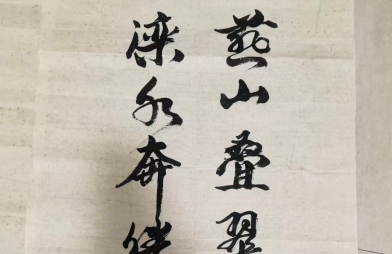 燕山叠翠
滦水奔